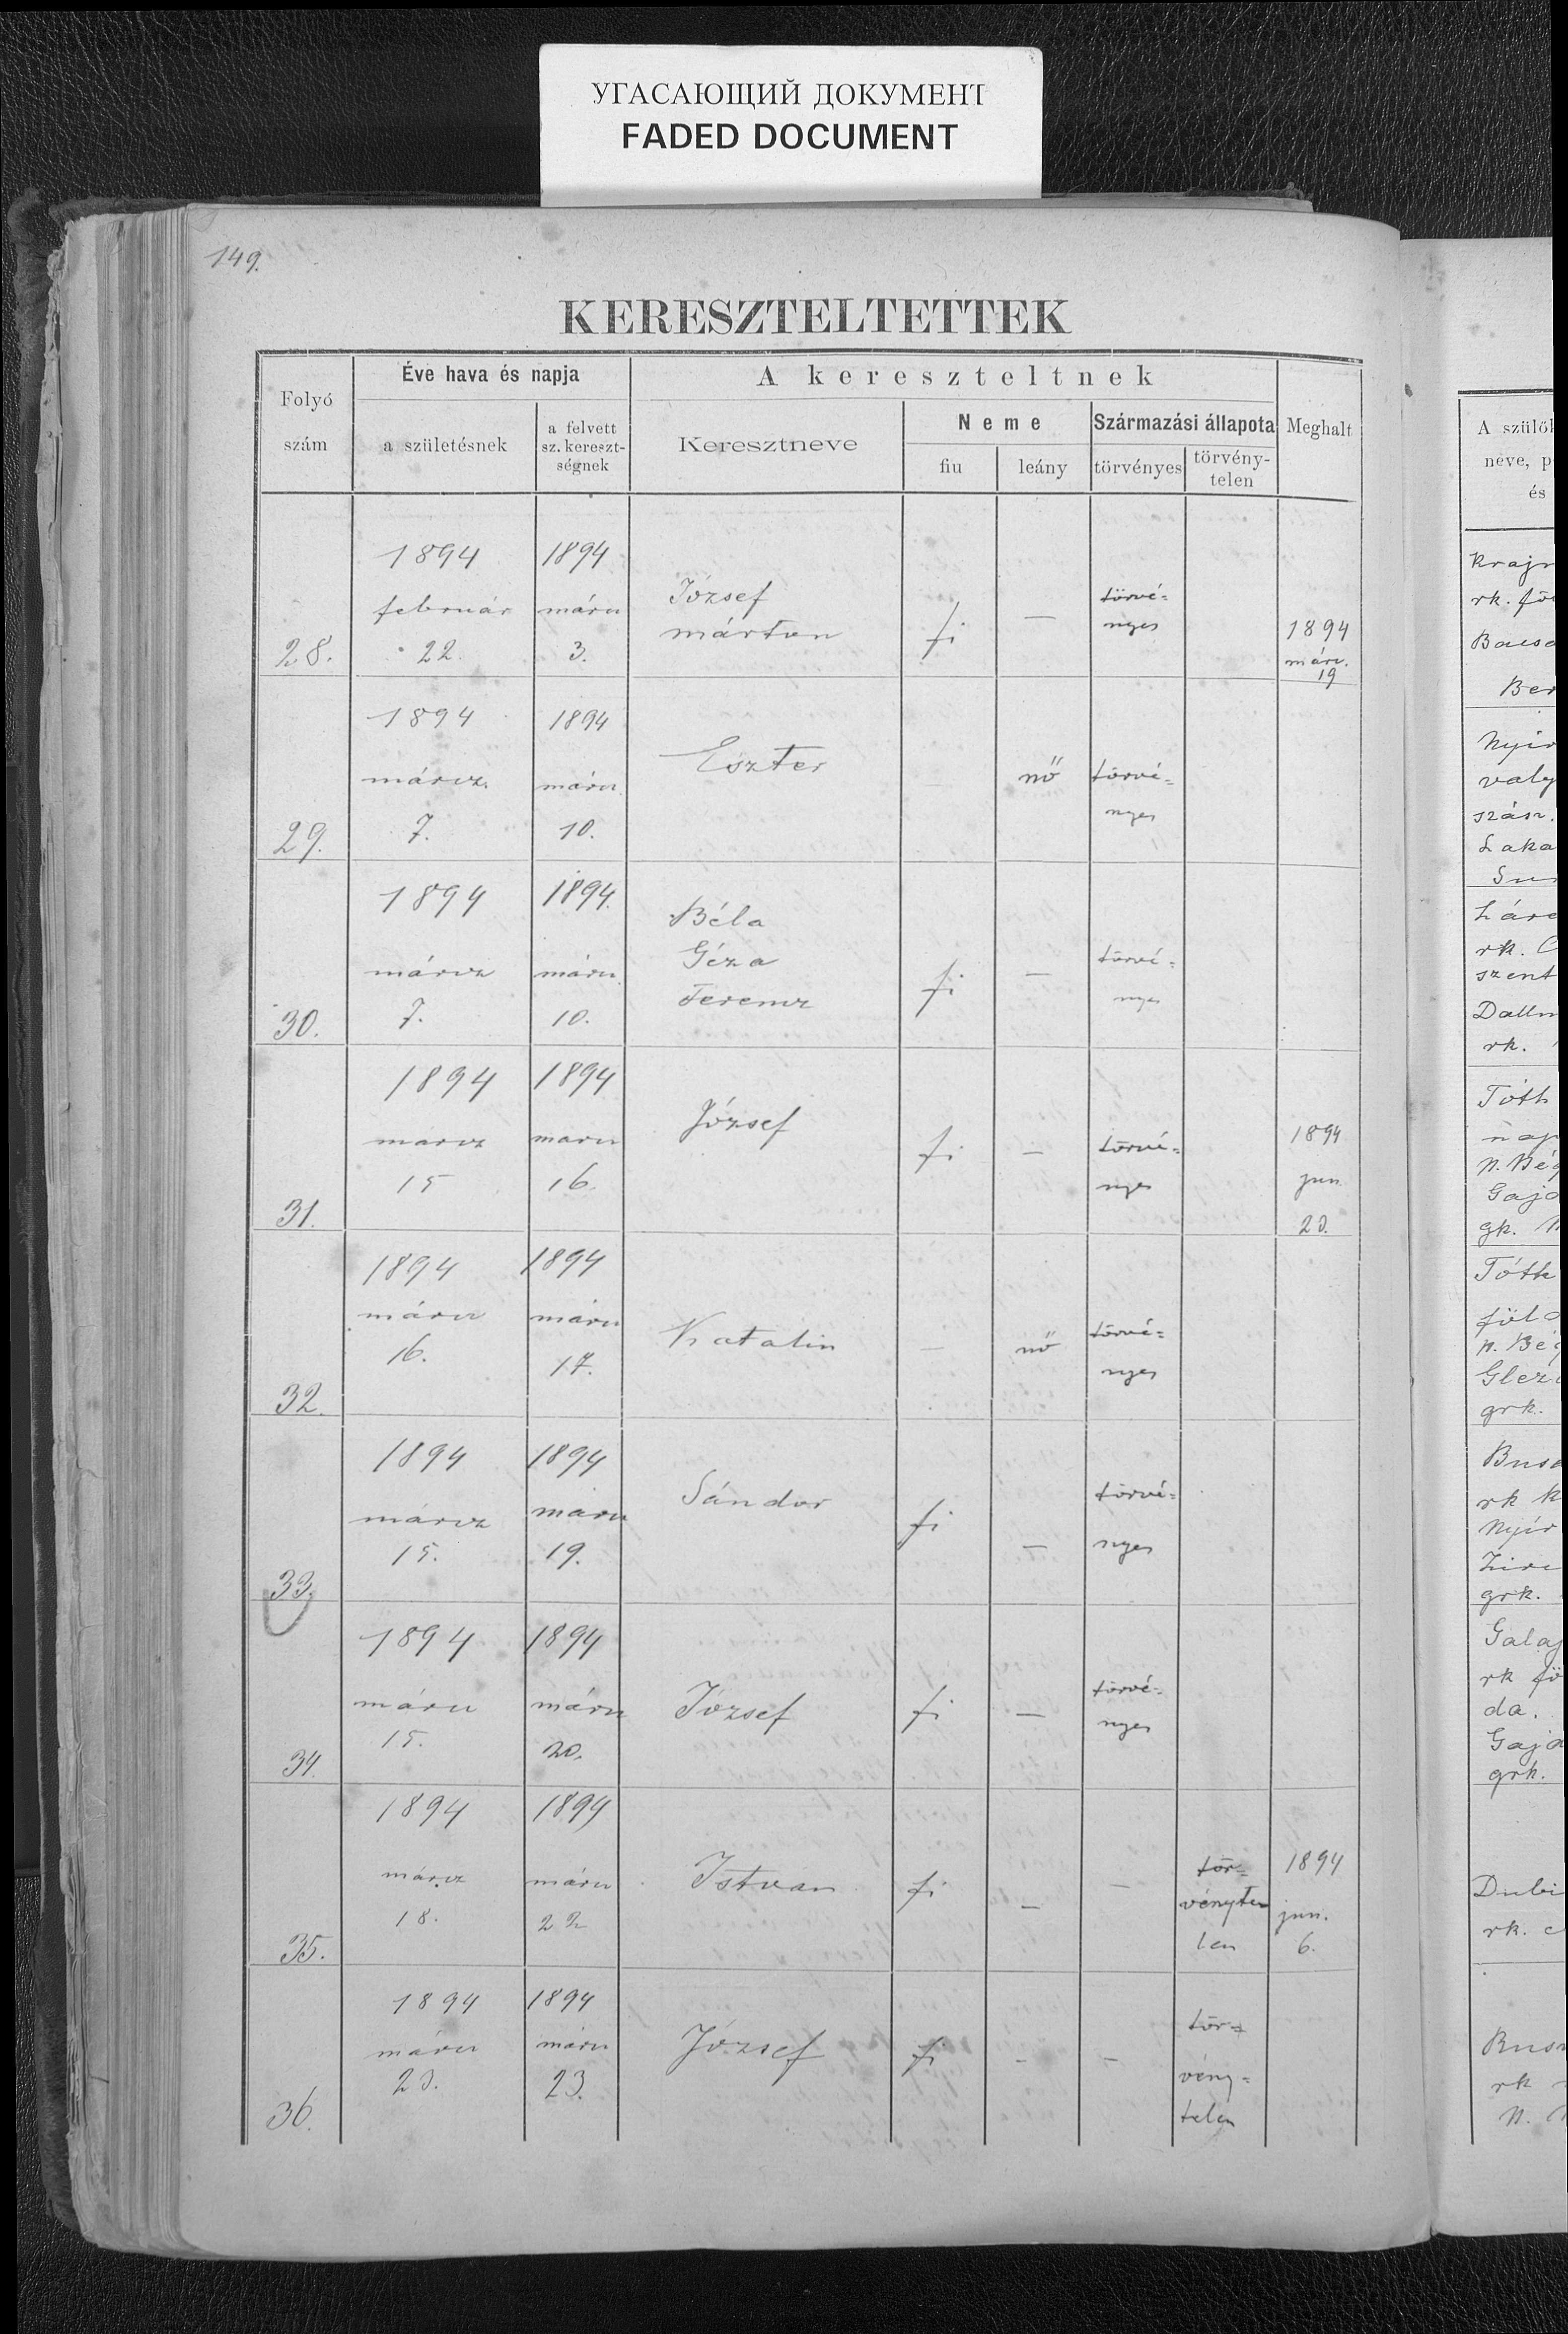 УГАСАЮЩИЙ ДОКУМЕНТ
FADED DOCUMENT
149.
KERESZTELTETTEK
Folyó szám
Éve hava és napja
a születésnek
a felvett sz. kereszt-ségnek
A kereszteltnek
Keresztneve
Neme
fiu
leány
Származási állapota
törvényes
törvény-telen
Meghalt
28.
1894 február 22.
1894 márcz 3.
József
márton
fi
—
törvé=
nyes
1894
márc.
19
29.
1894 márcz. 7.
1894 márcz. 10.
Eszter
—
nő
törvé=
nyes
30.
1894 márcz 7.
1894. márcz. 10.
Béla
Géza
Ferencz
fi
—
törvé=
nyes
31.
1894 marcz 15
1894 marcz 16.
József
fi
—
törvé=
nyes
1894
jun.
20.
32.
1894 márcz 16.
1894 márcz 17.
Katalin
—
nő
törvé=
nyes
33.
1894 márcz 15.
1894 márcz 19.
Sándor
fi
—
törvé=
nyes
34.
1894 márcz 15.
1894 márcz 20.
József
fi
—
törvé=
nyes
35.
1894 márcz 18.
1894 márcz 22
Istvan
fi
—
—
tör=
vényte
len
1894
jun.
6.
36.
1894 márcz 23.
1894 márcz 23.
József
fi
-
-
tör=
vény=
telen
A szülők
neve, p
és
Krajn
rk. föl
Bacso
Ber
Nyir
valy
szász.
Laka
rk.
szent
Dalln
rk.
Tóth
nap
N. Bég
Gajd
gk.
Tóth
föld
N. Bég
Glez
grk.
Bus
rk k
Nyir
grk.
Galaj
rk fö
da.
Gajd
grk.
Dubi
rk.
Rus
rk
N.